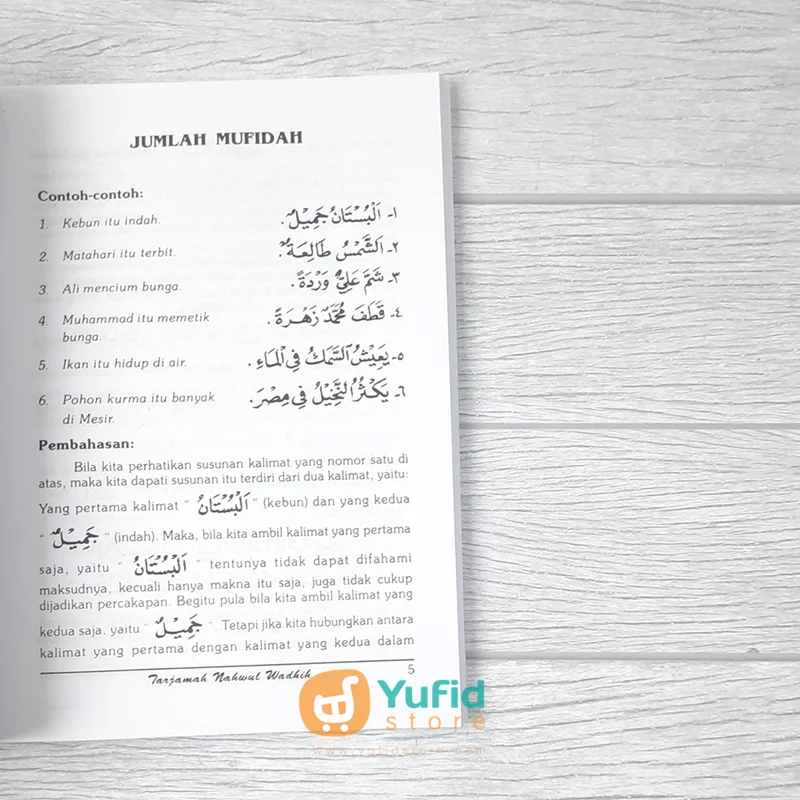 JUMLAH MUFIDAH
Contoh-contoh:
1. Kebun itu indah. ١- اَلْبُسْتَانُ جَمِيْلٌ.
2. Matahari itu terbit. ٢- اَلشَّمْسُ طَالِعَةٌ.
3. Ali mencium bunga. ٣- شَمَّ عَلِيٌّ وَرْدَةً.
4. Muhammad itu memetik ٤- قَطَفَ مُحَمَّدٌ زَهْرَةً.
bunga.
5. Ikan itu hidup di air. ٥- يَعِيْشُ السَّمَكُ فِى الْمَاءِ.
6. Pohon kurma itu banyak ٦- يَكْثُرُ النَّخِيْلُ فِى مِصْرَ.
di Mesir.
Pembahasan:
Bila kita perhatikan susunan kalimat yang nomor satu di
atas, maka kita dapati susunan itu terdiri dari dua kalimat, yaitu:
Yang pertama kalimat " اَلْبُسْتَانُ " (kebun) dan yang kedua
" جَمِيْلٌ " (indah). Maka, bila kita ambil kalimat yang pertama
saja, yaitu " اَلْبُسْتَانُ " tentunya tidak dapat difahami
maksudnya, kecuali hanya makna itu saja, juga tidak cukup
dijadikan percakapan. Begitu pula bila kita ambil kalimat yang
kedua saja. yaitu " جَمِيْلٌ ". Tetapi jika kita hubungkan antara
kalimat yang pertama dengan kalimat yang kedua dalam
Tarjamah Nahwul Wadhih 5
Yufid
store
www.yufidstore.com